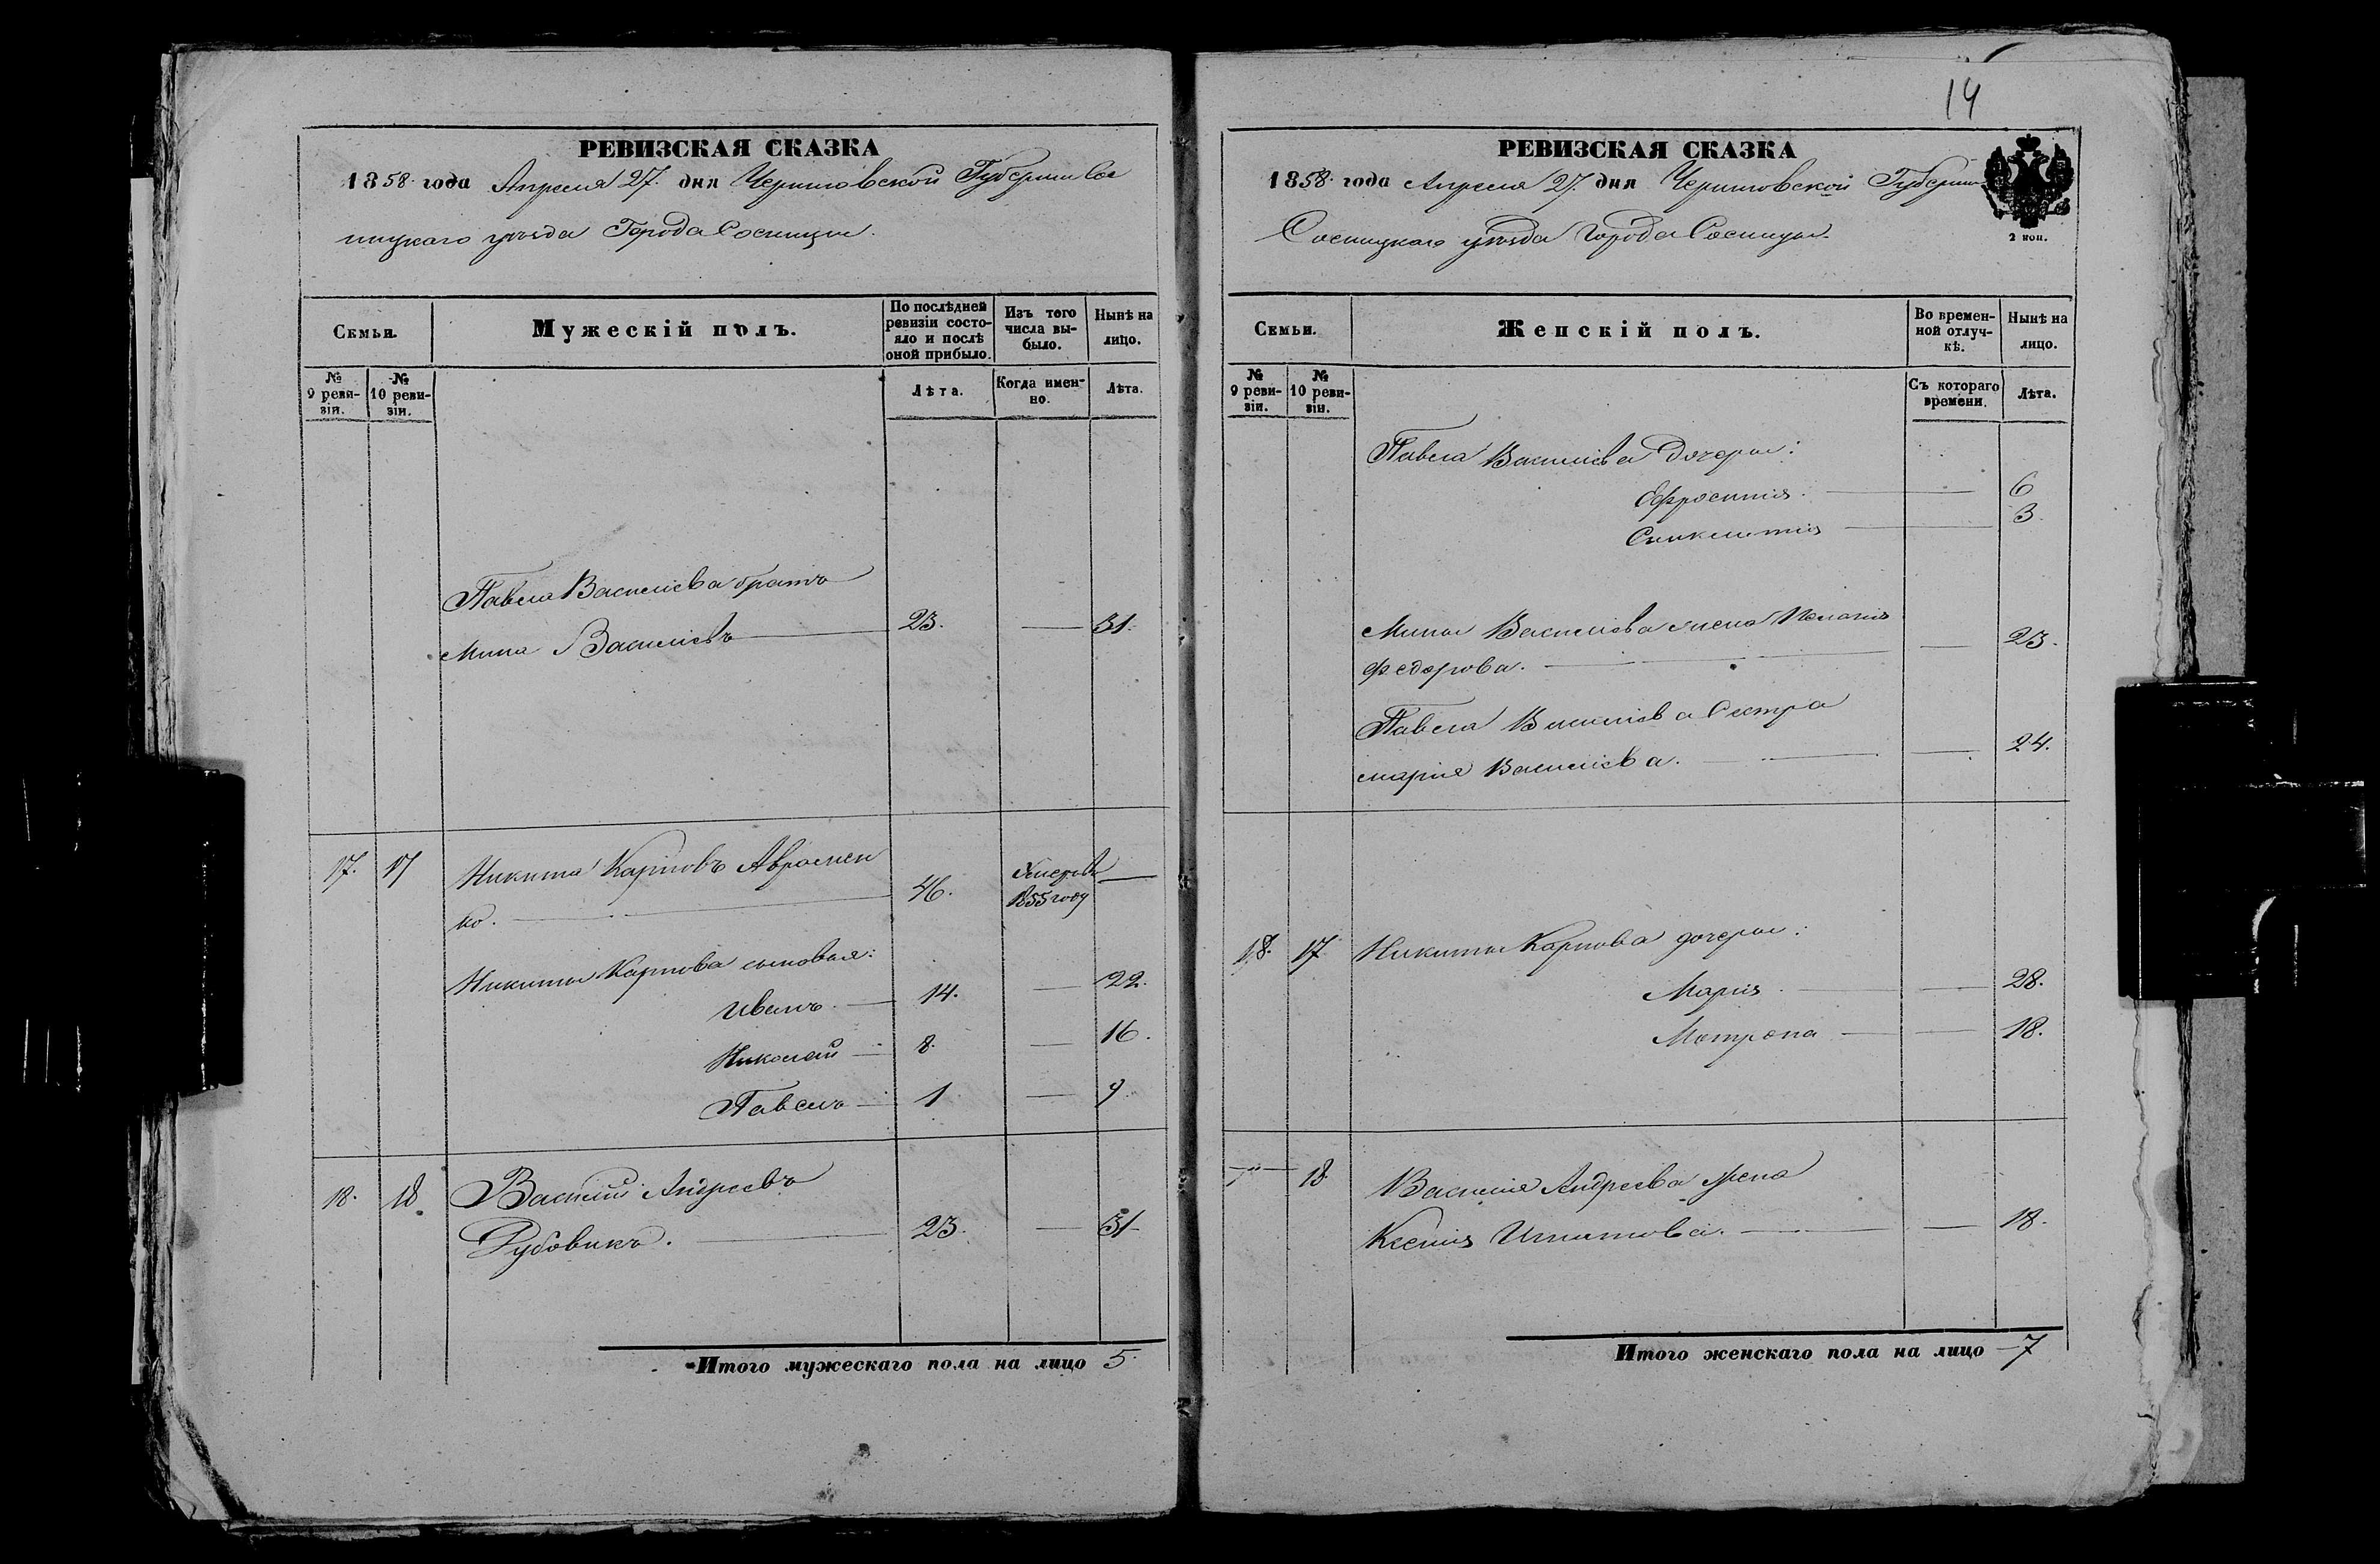 РЕВИЗСКАЯ СКАЗКА
1858 года Апреля 27. дня Черниговской Губернии Сос
ницкаго уѣзда Города Сосницы.
Семьи.
Мужескій полъ.
По послѣдней ревизіи состояло и послѣ оной прибыло.
Изъ того числа выбыло.
Нынѣ на лицо.
№ 9 ревизіи.
№ 10 ревизіи.
Лѣта.
Когда именно.
Лѣта.
Павла Василіева братъ
Мина Василіевъ 23. 31.
17. 17 Никита Карповъ Авраменко. 46. Умеръ въ 1855 году
Никиты Карпова сыновья:
Иванъ 14. 22.
Николай 8. 16.
Павелъ 1 9
18. 18. Василій Андреевъ
Рубовикъ. 23. 31
Итого мужескаго пола на лицо 5.
14
РЕВИЗСКАЯ СКАЗКА
1858 года Апреля 27. дня Черниговской Губерніи
Сосницкаго уѣзда Города Сосницы.
2 коп.
Семьи.
Женскій полъ.
Во временной отлучкѣ.
Нынѣ на лицо.
№ 9 ревизіи.
№ 10 ревизіи.
Съ котораго времени.
Лѣта.
Павла Василіева дочери:
Ефросинія. 6
Синклитія 3
Мины Василіева жена Пелагія
Федорова. 23.
Павла Василіева Сестра
Марія Василіева. 24.
18. 17 Никиты Карпова дочери:
Марія 28.
Матрона 18.
18. Василія Андреева жена
Ксенія Игнатова. 18.
Итого женскаго пола на лицо 7